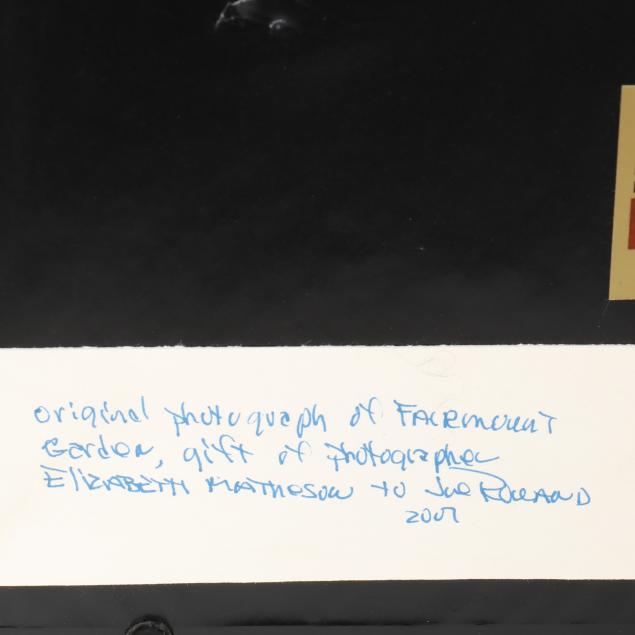 original photograph of FAIRMOUNT
Garden, gift of photographer
ElizABETH MATHESON to Joe ROWAND
2007